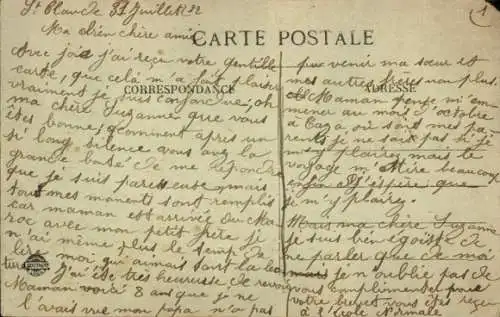 St Claude 31 Juillet 22
1
Ma bien chère amie
CARTE POSTALE
CORRESPONDANCE
ADRESSE
Avec joie j'ai reçu votre gentille
carte, que celà m'a fait plaisir
vraiment je suis confondue, oh
ma chère Suzanne que vous
êtes bonne, comment après un
si long silence vous avez la
grande bonté de me répondre
que je suis paresseuse mais
tous mes moments sont remplis
car maman est arrivée du Ma
roc avec mon petit frère je
n'ai même plus le temps de
lire moi qui aimais tant la lec
ture
J'ai été très heureuse de revoir
Maman voici 8 ans que je ne
l'avais vue mon papa n'a pas
pue venir ma sœur et
mes autres frères non plus.
Maman pense m'em
mener au mois d'octobre
à Caza où sont mes pa
rents je ne sais pas si je
m'y plairai mais le
voyage m'attire beaucoup
enfin j'espère que
je m'y plairez.
Mais ma chère Suzanne
je suis bien égoïste de
ne parler que de moi
mais je n'oublie pas de
vous complimenter pour
votre brevet vous êtes reçue
à l'École Normale